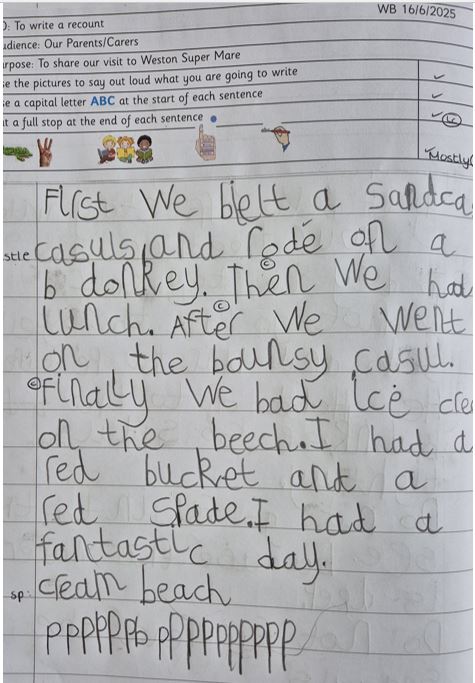 WB 16/6/2025
O: To write a recount
udience: Our Parents/Carers
rpose: To share our visit to Weston Super Mare
se the pictures to say out loud what you are going to write
se a capital letter ABC at the start of each sentence
t a full stop at the end of each sentence
Mostly
First We bielt a Sandca
stle casuls, and rode on a
b donkey. Then We had
Lunch. After We Went
on the bounsy casul.
Finally We bad Ice cre
on the beech. I had a
red bucket and a
red Spade. I had a
fantastic day.
sp: cream beach
ppppppb pppppppppp